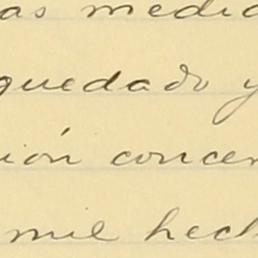 as medid
quedado y
ión concer
mil hech